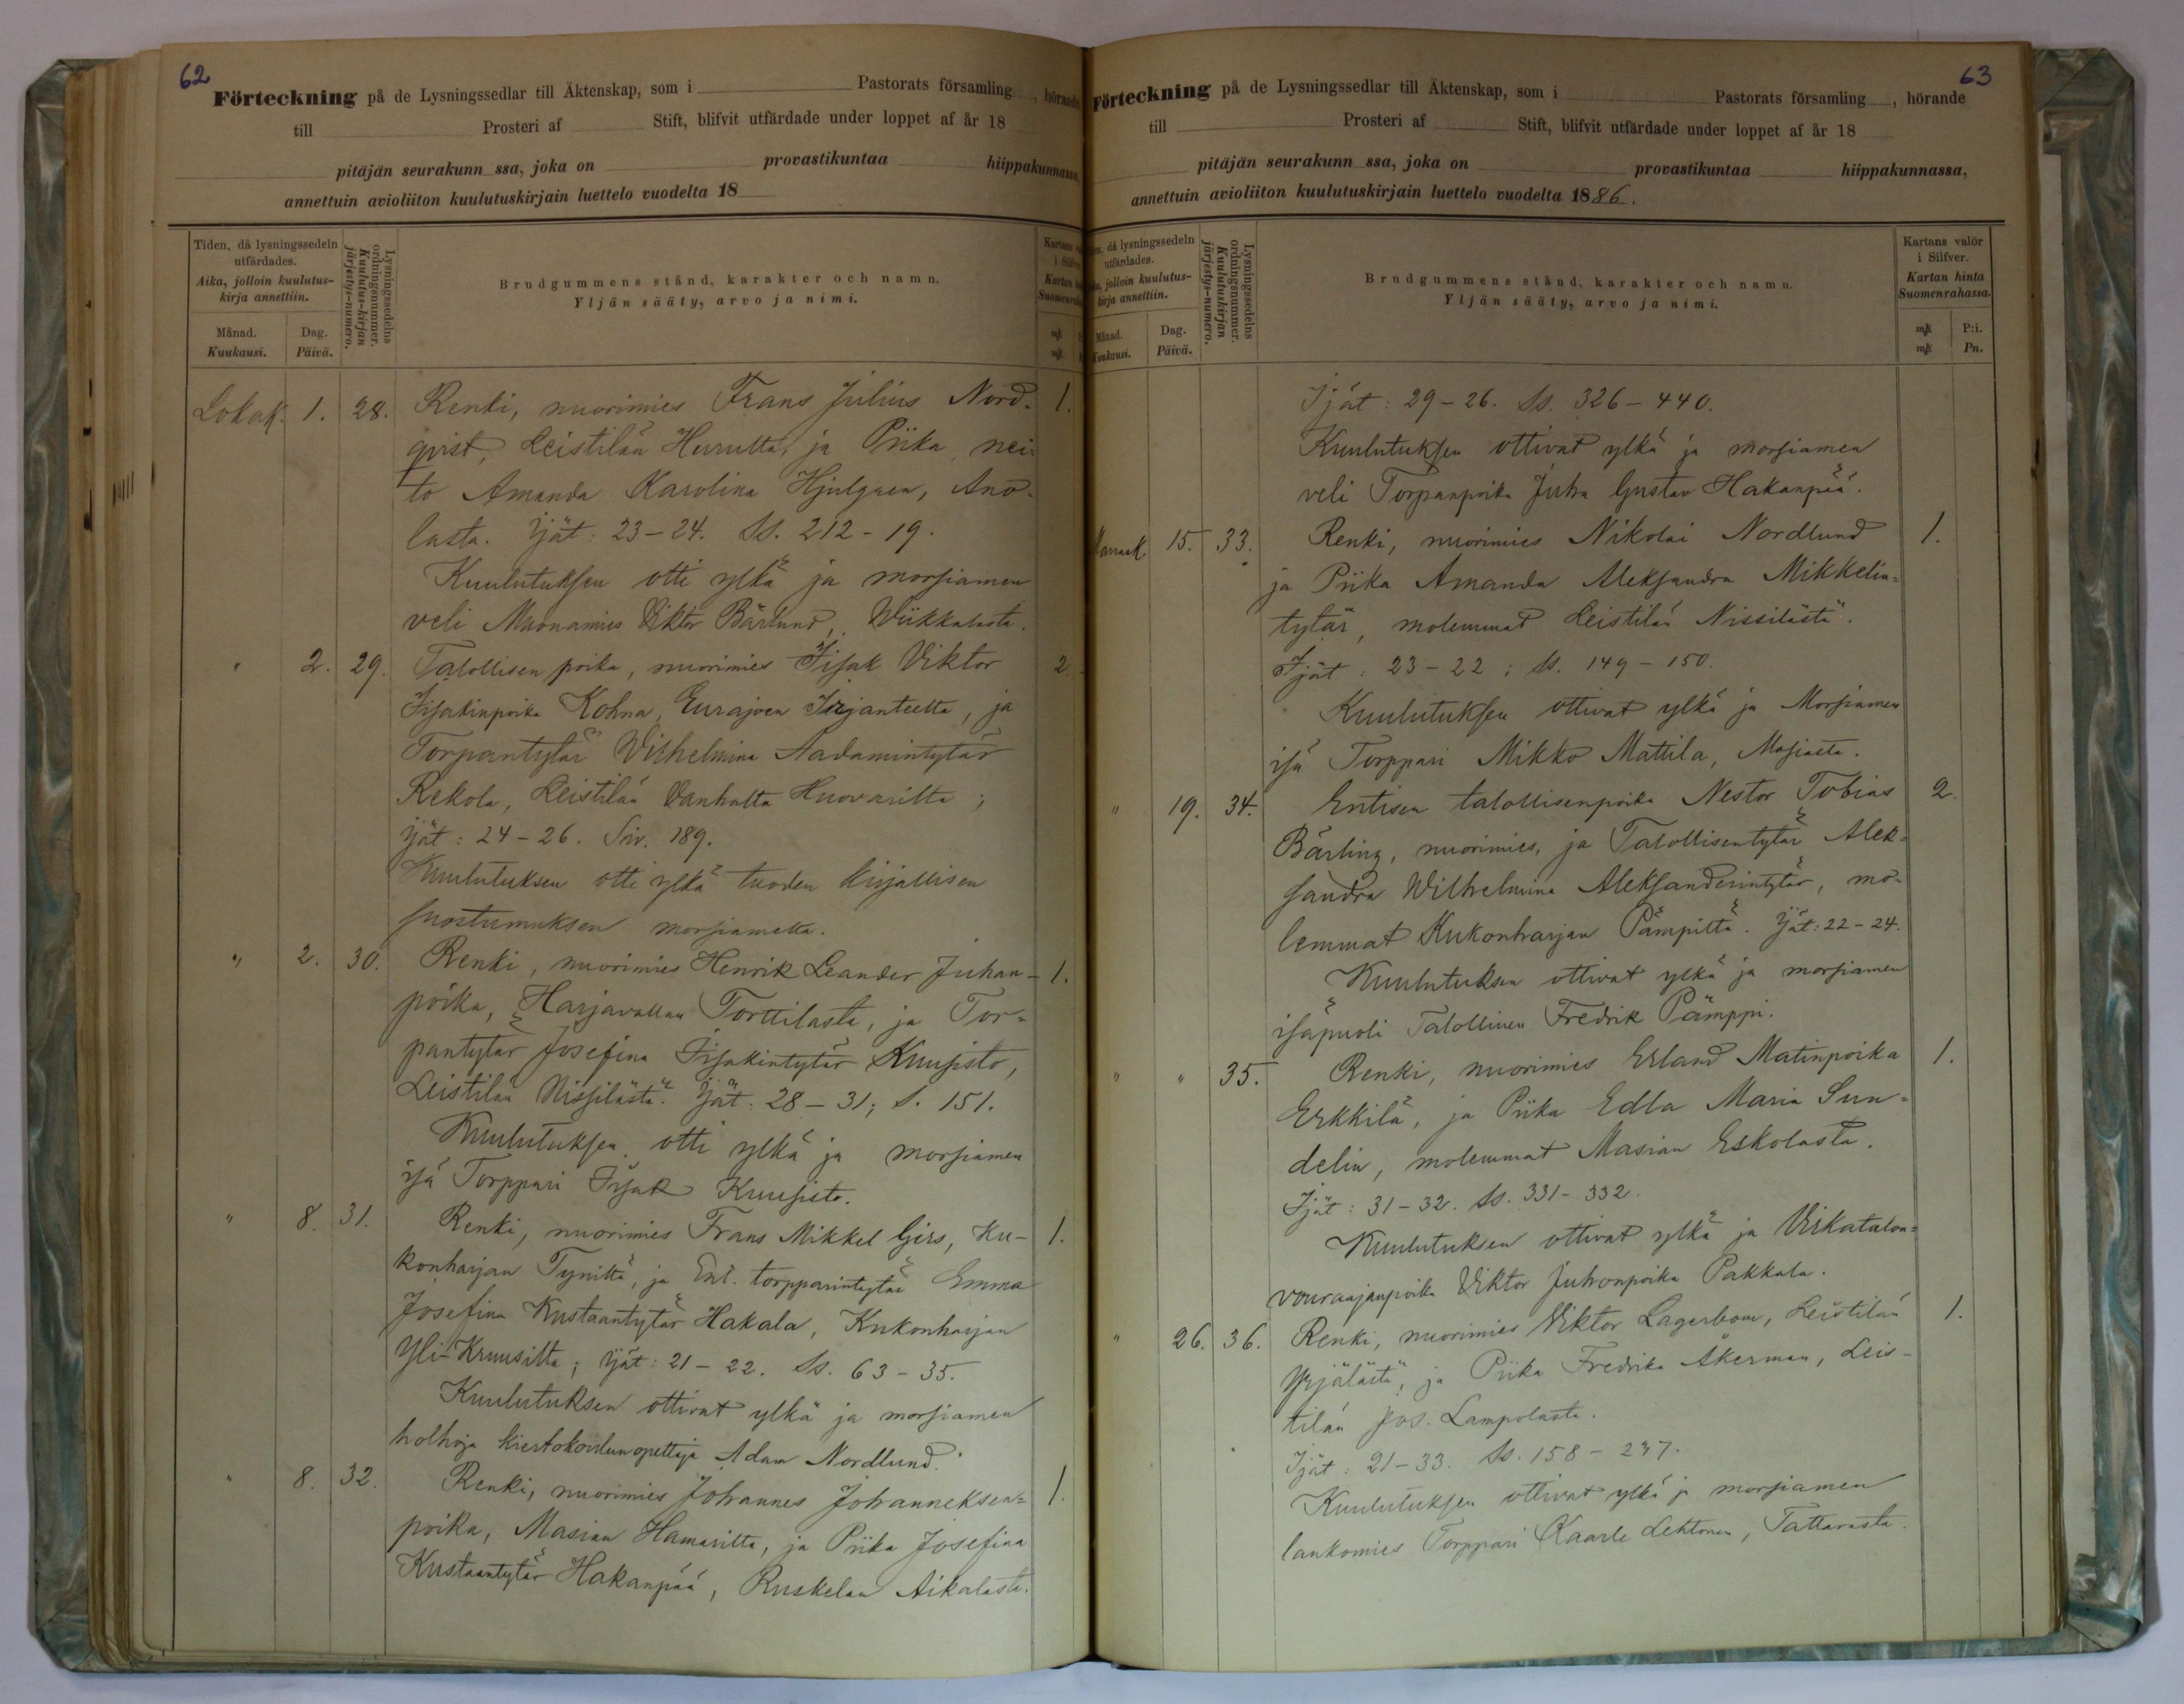 62
Förteckning på de Lysningssedlar till Äktenskap, som i Pastorats församling , hörande
till Prosteri af Stift, blifvit utfärdade under loppet af år 18
pitäjän seurakunn ssa, joka on provastikuntaa hiippakunnassa,
annettuin avioliiton kuulutuskirjain luettelo vuodelta 18
Tiden, då lysningssedeln
utfärdades.
Aika, jolloin kuulutus-
kirja annettiin.
Månad.
Kuukausi.
Dag.
Päivä.
Lysningssedelns
ordningsnummer.
Kuulutus-kirjan
järjestys-numero.
Brudgummens stånd, karakter och namn.
Yljän sääty, arvo ja nimi.
Kartans
i Silfver
Kartan
Suomenraha
mk
mk
Lokak. 1. 28. Renki, nuorimies Frans Julius Nord- 1.
qvist, Leistilän Hurulta, ja Piika, nei-
to Amanda Karolina Hjulgren, Ano-
lasta. Ijät: 23-24. Ss. 212-19.
Kuulutuksen otti ylkä ja morsiamen
veli Muonamies Viktor Bärlund, Wiikkalasta.
" 2. 29. Talollisen poika, nuorimies Iisak Viktor 2
Iisakinpoika Kohna, Eurajoen Irjanteelta, ja
Torpantytär Wilhelmina Aadamintytär
Rekola, Leistilän Vanhalta Huovarilta;
Ijät: 24-26. Siv. 189.
Kuulutuksen otti ylkä tuoden kirjallisen
suostumuksen morsiamelta.
" 2. 30. Renki, nuorimies Henrik Leander Juhan- 1.
poika, Harjavallan Torttilasta, ja Tor-
pantytär Josefina Iisakintytär Kuusisto,
Leistilän Nissilästä. Ijät: 28-31; S. 151.
Kuulutuksen otti ylkä ja morsiamen
isä Torppari Iisak Kuusisto.
" 8. 31. Renki, nuorimies Frans Mikkel Girs, Ku- 1.
konharjan Tyniltä, ja Ent. torpparintytär Emma
Josefina Kustaantytär Hakala, Kukonharjan
Yli-Kruusilta; Ijät: 21-22. Ss. 63-35.
Kuulutuksen ottivat ylkä ja morsiamen
holhoja kiertokoulunopettaja Adam Nordlund.
" 8. 32. Renki, nuorimies Johannes Johanneksen- 1.
poika, Masian Hamarilta, ja Piika Josefina
Kustaantytär Hakanpää, Ruskelan Aikalasta.
63
Förteckning på de Lysningssedlar till Äktenskap, som i Pastorats församling , hörande
till Prosteri af Stift, blifvit utfärdade under loppet af år 18
pitäjän seurakunn ssa, joka on provastikuntaa hiippakunnassa,
annettuin avioliiton kuulutuskirjain luettelo vuodelta 1886.
då lysningssedeln
utfärdades.
jolloin kuulutus-
kirja annettiin.
Månad.
Kuukausi.
Dag.
Päivä.
Lysningssedelns
ordningsnummer.
Kuulutuskirjan
järjestys-numero.
Brudgummens stånd, karakter och namn.
Yljän sääty, arvo ja nimi.
Kartans valör
i Silfver.
Kartan hinta
Suomenrahassa.
mk P:i.
mk Pn.
Ijät: 29-26. Ss. 326-440.
Kuulutuksen ottivat ylkä ja morsiamen
veli Torpanpoika Juha Gustav Hakanpää.
Marrask. 15. 33. Renki, nuorimies Nikolai Nordlund 1.
ja Piika Amanda Aleksandra Mikkelin-
tytär, molemmat Leistilän Nissilästä.
Ijät: 23-22; Ss. 149-150.
Kuulutuksen ottivat ylkä ja Morsiamen
isä Torppari Mikko Mattila, Masiasta.
" 19. 34. Entisen talollisenpoika Nestor Tobias 2.
Bärling, nuorimies, ja Talollisentytär Alek-
sandra Wilhelmina Aleksanderintytär, mo-
lemmat Kukonharjan Pämpiltä. Ijät: 22-24.
Kuulutuksen ottivat ylkä ja morsiamen
isäpuoli Talollinen Fredrik Pämppi.
" " 35. Renki, nuorimies Erland Matinpoika 1.
Erkkilä, ja Piika Edla Maria Sun-
delin, molemmat Masian Eskolasta.
Ijät: 31-32. Ss. 331-332.
Kuulutuksen ottivat ylkä ja Virkatalon-
vouraajanpoika Viktor Juhonpoika Pakkala.
" 26. 36. Renki, nuorimies Viktor Lagerbom, Leistilän 1.
Yrjälästä, ja Piika Fredrika Åkerman, Leis-
tilän Jos. Lampolasta.
Ijät: 21-33. Ss. 158-237.
Kuulutuksen ottivat ylkä ja morsiamen
lankomies Torppari Kaarle Lehtonen, Tattarasta.